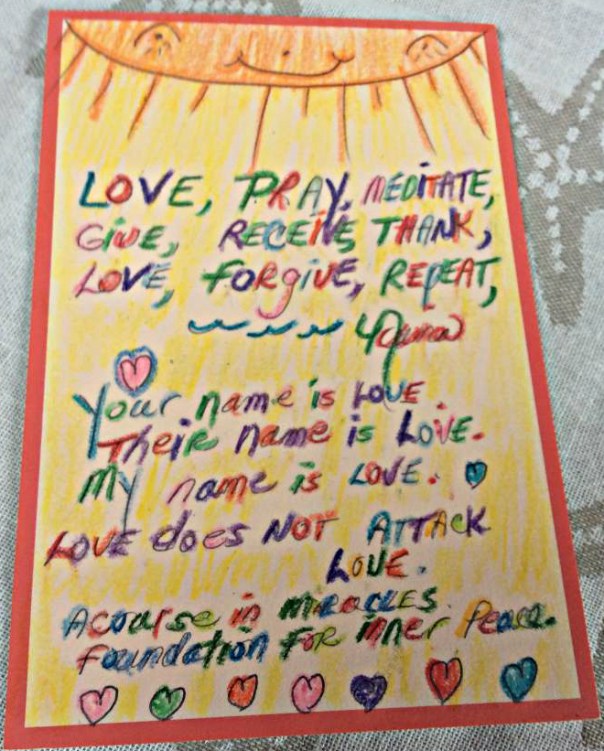 LOVE, PRAY, MEDITATE,
GIVE, RECEIVE, THANK,
LOVE, FORgIVE, REPEAT,
Your name is LOVE.
Their name is LOVE.
My name is LOVE.
LOVE does NOT ATTACK
LOVE.
A course in miRACLES.
foundation FOR inner Peace.